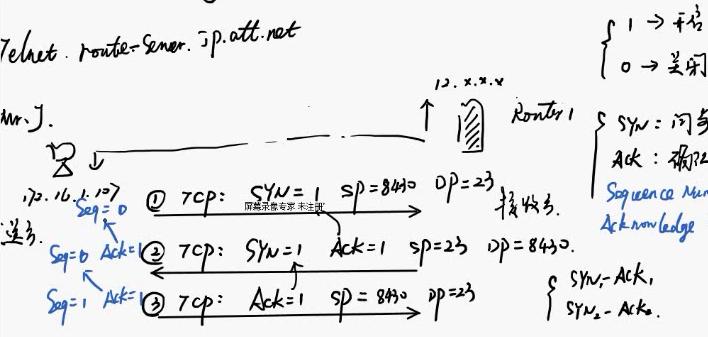 Telnet. route-server.ip.att.net
1 → 开启
0 → 关闭
12.x.x.x
Router1
Mr.J.
SYN:问
ACK:确认
172.16.1.107
Sequence Num
Acknowledge
Seq=0 ① TCP: SYN=1 SP=8430 DP=23 接收方.
屏幕录像专家 未注册
Seq=0 Ack=1 ② TCP: SYN=1 Ack=1 SP=23 DP=8430.
Seq=1 Ack=1 ③ TCP: Ack=1 SP=8430 DP=23
SYN₁-ACK₁
SYN₂-ACK₂.